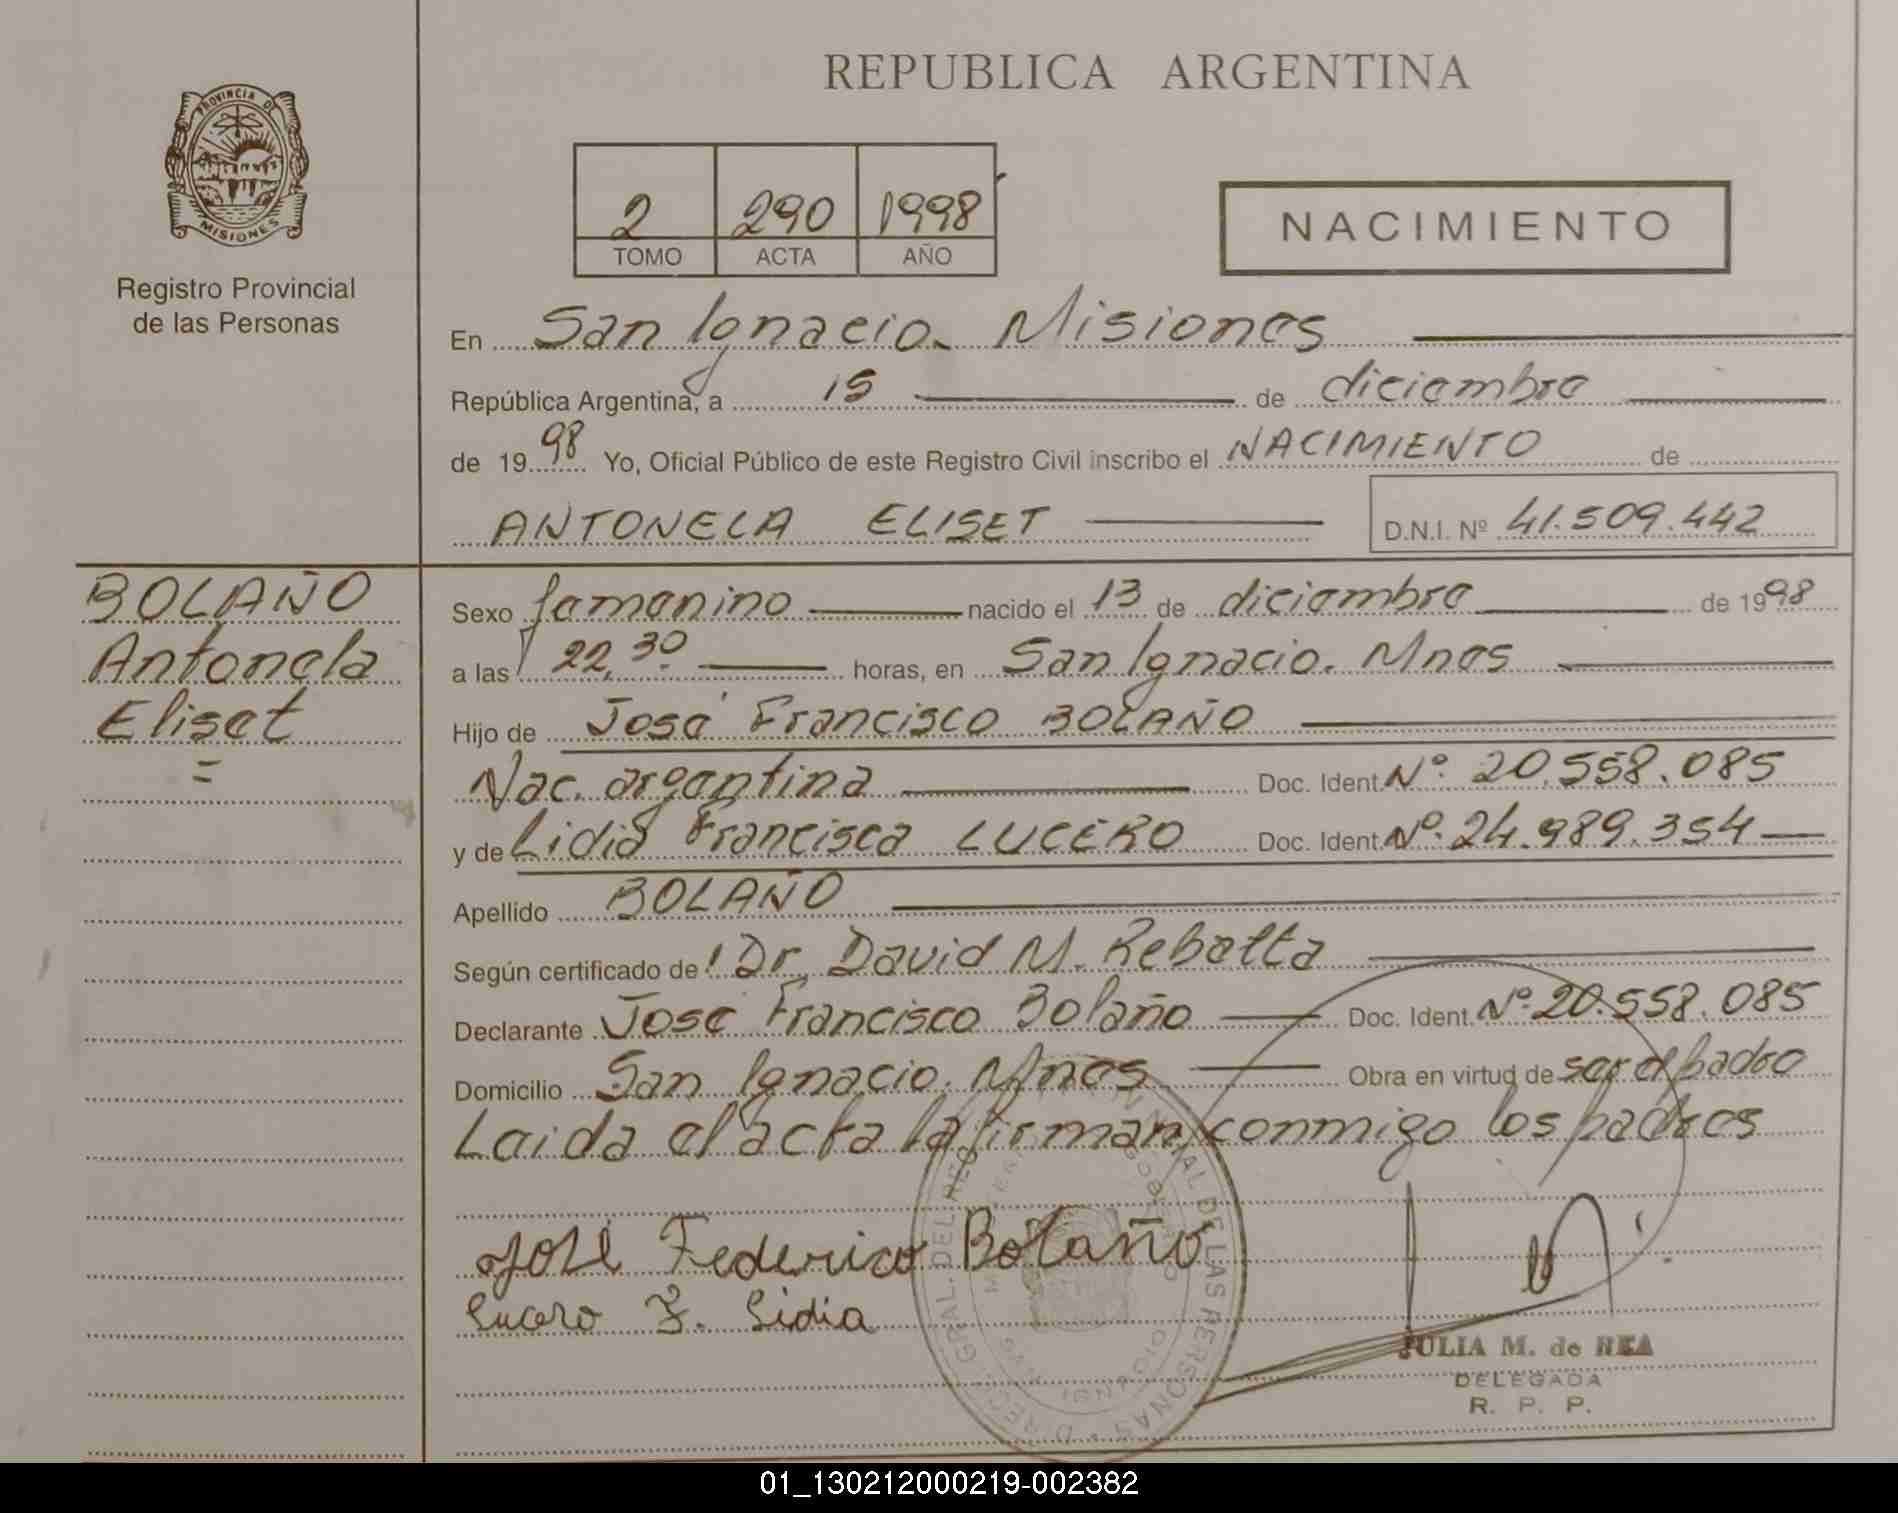 REPUBLICA ARGENTINA
PROVINCIA DE
MISIONES
Registro Provincial
de las Personas
2 290 1998
TOMO ACTA AÑO
NACIMIENTO
En San Ignacio. Misiones
República Argentina, a 15 de diciembre
de 1998 Yo, Oficial Público de este Registro Civil inscribo el NACIMIENTO de
ANTONELA ELISET D.N.I. Nº 41.509.442
BOLAÑO
Antonela
Eliset
=
Sexo femenino nacido el 13 de diciembre de 1998
a las 22,30 horas, en San Ignacio. Mnes
Hijo de José Francisco BOLAÑO
Nac. argentina Doc. Ident. Nº. 20.558.085
y de Lidia Francisca LUCERO Doc. Ident. Nº. 24.989.354
Apellido BOLAÑO
Según certificado de Dr. David M. Rebatta
Declarante José Francisco Bolaño Doc. Ident. Nº. 20.558.085
Domicilio San Ignacio. Mnes Obra en virtud de ser el padre
Leida el acta la firman conmigo los padres
José Federico Bolaño
Lucero F. Lidia
JULIA M. de REA
DELEGADA
R. P. P.
01_130212000219-002382